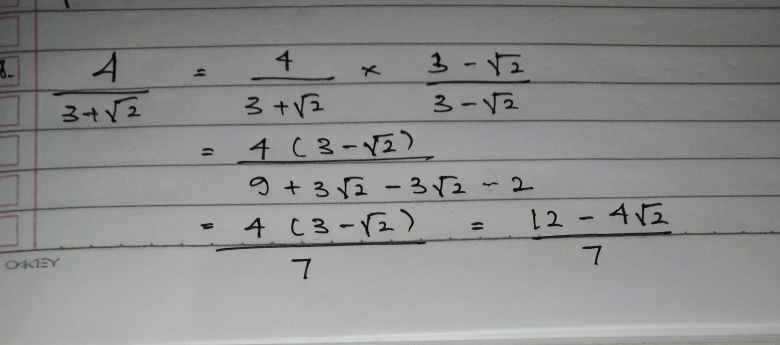 8. 4/(3+√2) = 4/(3+√2) × (3-√2)/(3-√2)
= 4(3-√2)/(9+3√2-3√2-2)
= 4(3-√2)/7 = (12-4√2)/7
OKEY